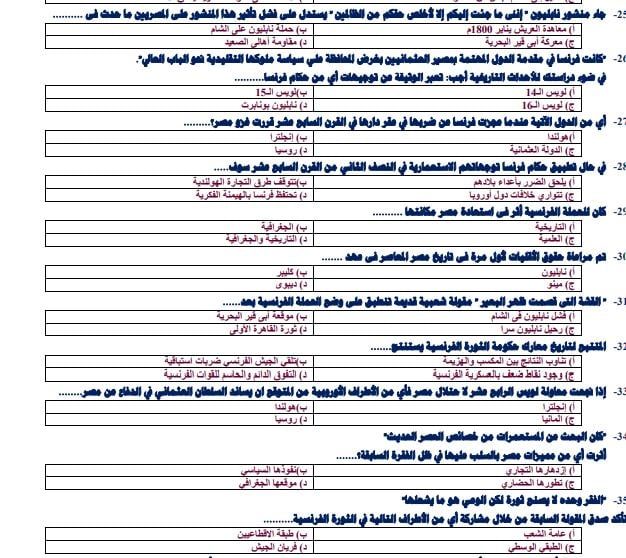 25- جاء منشور نابليون " إننى ما جئت إليكم إلا لأخلص حقكم من الظالمين " يستدل على فشل تأثير هذا المنشور على المصريين ما حدث فى ..........
أ) معاهدة العريش يناير 1800م ب) حملة نابليون على الشام
ج) معركة أبى قير البحرية د) مقاومة أهالي الصعيد
26- "كانت فرنسا في مقدمة الدول المهتمة بمصير العثمانيين بغرض المحافظة على سياسة ملوكها التقليدية نحو الباب العالي".
في ضوء دراستك للأحداث التاريخية أجب: تعبر الوثيقة عن توجيهات أي من حكام فرنسا..........
أ) لويس الـ14 ب)لويس الـ15
ج) لويس الـ16 د) نابليون بونابرت
27- أي من الدول الآتية عندما عجزت فرنسا عن ضربها في عقر دارها في القرن السابع عشر قررت غزو مصر؟..........
أ)هولندا ب) إنجلترا
ج) الدولة العثمانية د) روسيا
28- في حال تطبيق حكام فرنسا توجهاتهم الاستعمارية في النصف الثاني من القرن السابع عشر سوف......
أ) يلحق الضرر بأعداء بلادهم ب)تتوقف طرق التجارة الهولندية
ج) تتوارى خلافات دول أوروبا د) تحتفظ فرنسا بالهيمنة الفكرية
29- كان للحملة الفرنسية أثر فى استعادة مصر مكانتها ..........
أ) التاريخية ب) الجغرافية
ج) العلمية د) التاريخية والجغرافية
30- تم مراعاة حقوق الأقليات لأول مرة فى تاريخ مصر المعاصر فى عهد .......
أ) نابليون ب) كليبر
ج) مينو د) ديبوى
31- " القشة التى قصمت ظهر البعير " مقولة شعبية قديمة تنطبق على وضع الحملة الفرنسية بعد......
أ) فشل نابليون فى الشام ب) موقعة أبى قير البحرية
ج) رحيل نابليون سرا د) ثورة القاهرة الأولى
32- المتتبع لتاريخ معارك حكومة الثورة الفرنسية يستنتج.......
أ) تناوب النتائج بين المكسب والهزيمة ب)تلقي الجيش الفرنسي ضربات استباقية
ج) وجود نقاط ضعف بالعسكرية الفرنسية د) التفوق الدائم والحاسم للقوات الفرنسية
33- إذا نجحت محاولة لويس الرابع عشر لا حتلال مصر فأي من الأطراف الأوروبية من المتوقع ان يساند السلطان العثماني في الدفاع عن مصر........
أ) إنجلترا ب)هولندا
ج) ألمانيا د) روسيا
34- "كان البحث عن المستعمرات من خصائص العصر الحديث"
أثرت أي من مميزات مصر بالسلب عليها في ظل الفقرة السابقة؟.......
أ) إزدهارها التجاري ب)نفوذها السياسي
ج) تطورها الحضاري د) موقعها الجغرافي
35- "الفقر وحده لا يصنع ثورة لكن الوعي هو ما يشعلها"
تأكد صدق المقولة السابقة من خلال مشاركة أي من الأطراف التالية في الثورة الفرنسية..........
أ) عامة الشعب ب) طبقة الاقطاعيين
ج) الطبقي الوسطي د) فريان الجيش